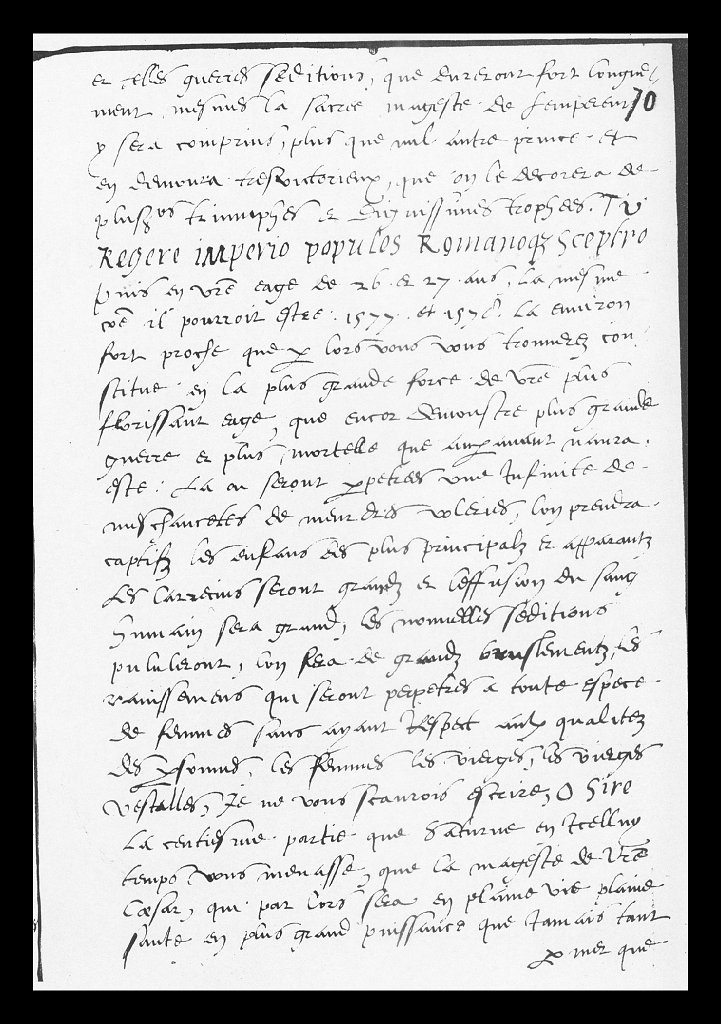 et telles guerres seditions, que dureront fort longue
ment mesmes la sacree mageste de lempereur 70
y sera comprins, plus que nul autre prince et
en demoura tresvictorieux, que on le decorera de
plus^rs triumphes et dignissimes trophees. Tu
Regere imperio populos Romanoq3 sceptro
Puis en vre eage de 26 et 27 ans, La mesme
il pourroit estre 1577 et 1578 La environ
fort proche que p lors vous vous trouverez con
stitue en la plus grande force de vre plus
florissant eage, que encor demonstre plus grande
guerre et plus mortelle que aupavant naura
este: La ou seront ppetrees une Infinite de
meschancetes de meurdres voleries, lon prendra
captifz les enfans des plus principalz et apparantz
Les larrecins seront grandz et leffusion du sang
humain sera grand, les nouvelles seditions
pululeront, lon fera de grandz bruslementz, les
ravissemens qui seront perpetres a toute espece
de femmes sans ayant Respect aulx qualitez
des psonnes, les femmes les vierges, les vierges
vestalles, Je ne vous scaurois escrire, O Sire
La centiesme partie que Saturne en Icelluy
temps vous menasse, que la mageste de vre
Cæsar, qui par lors sera en plaine vie plaine
sante en plus grand puissance que Jamais tant
p mer que